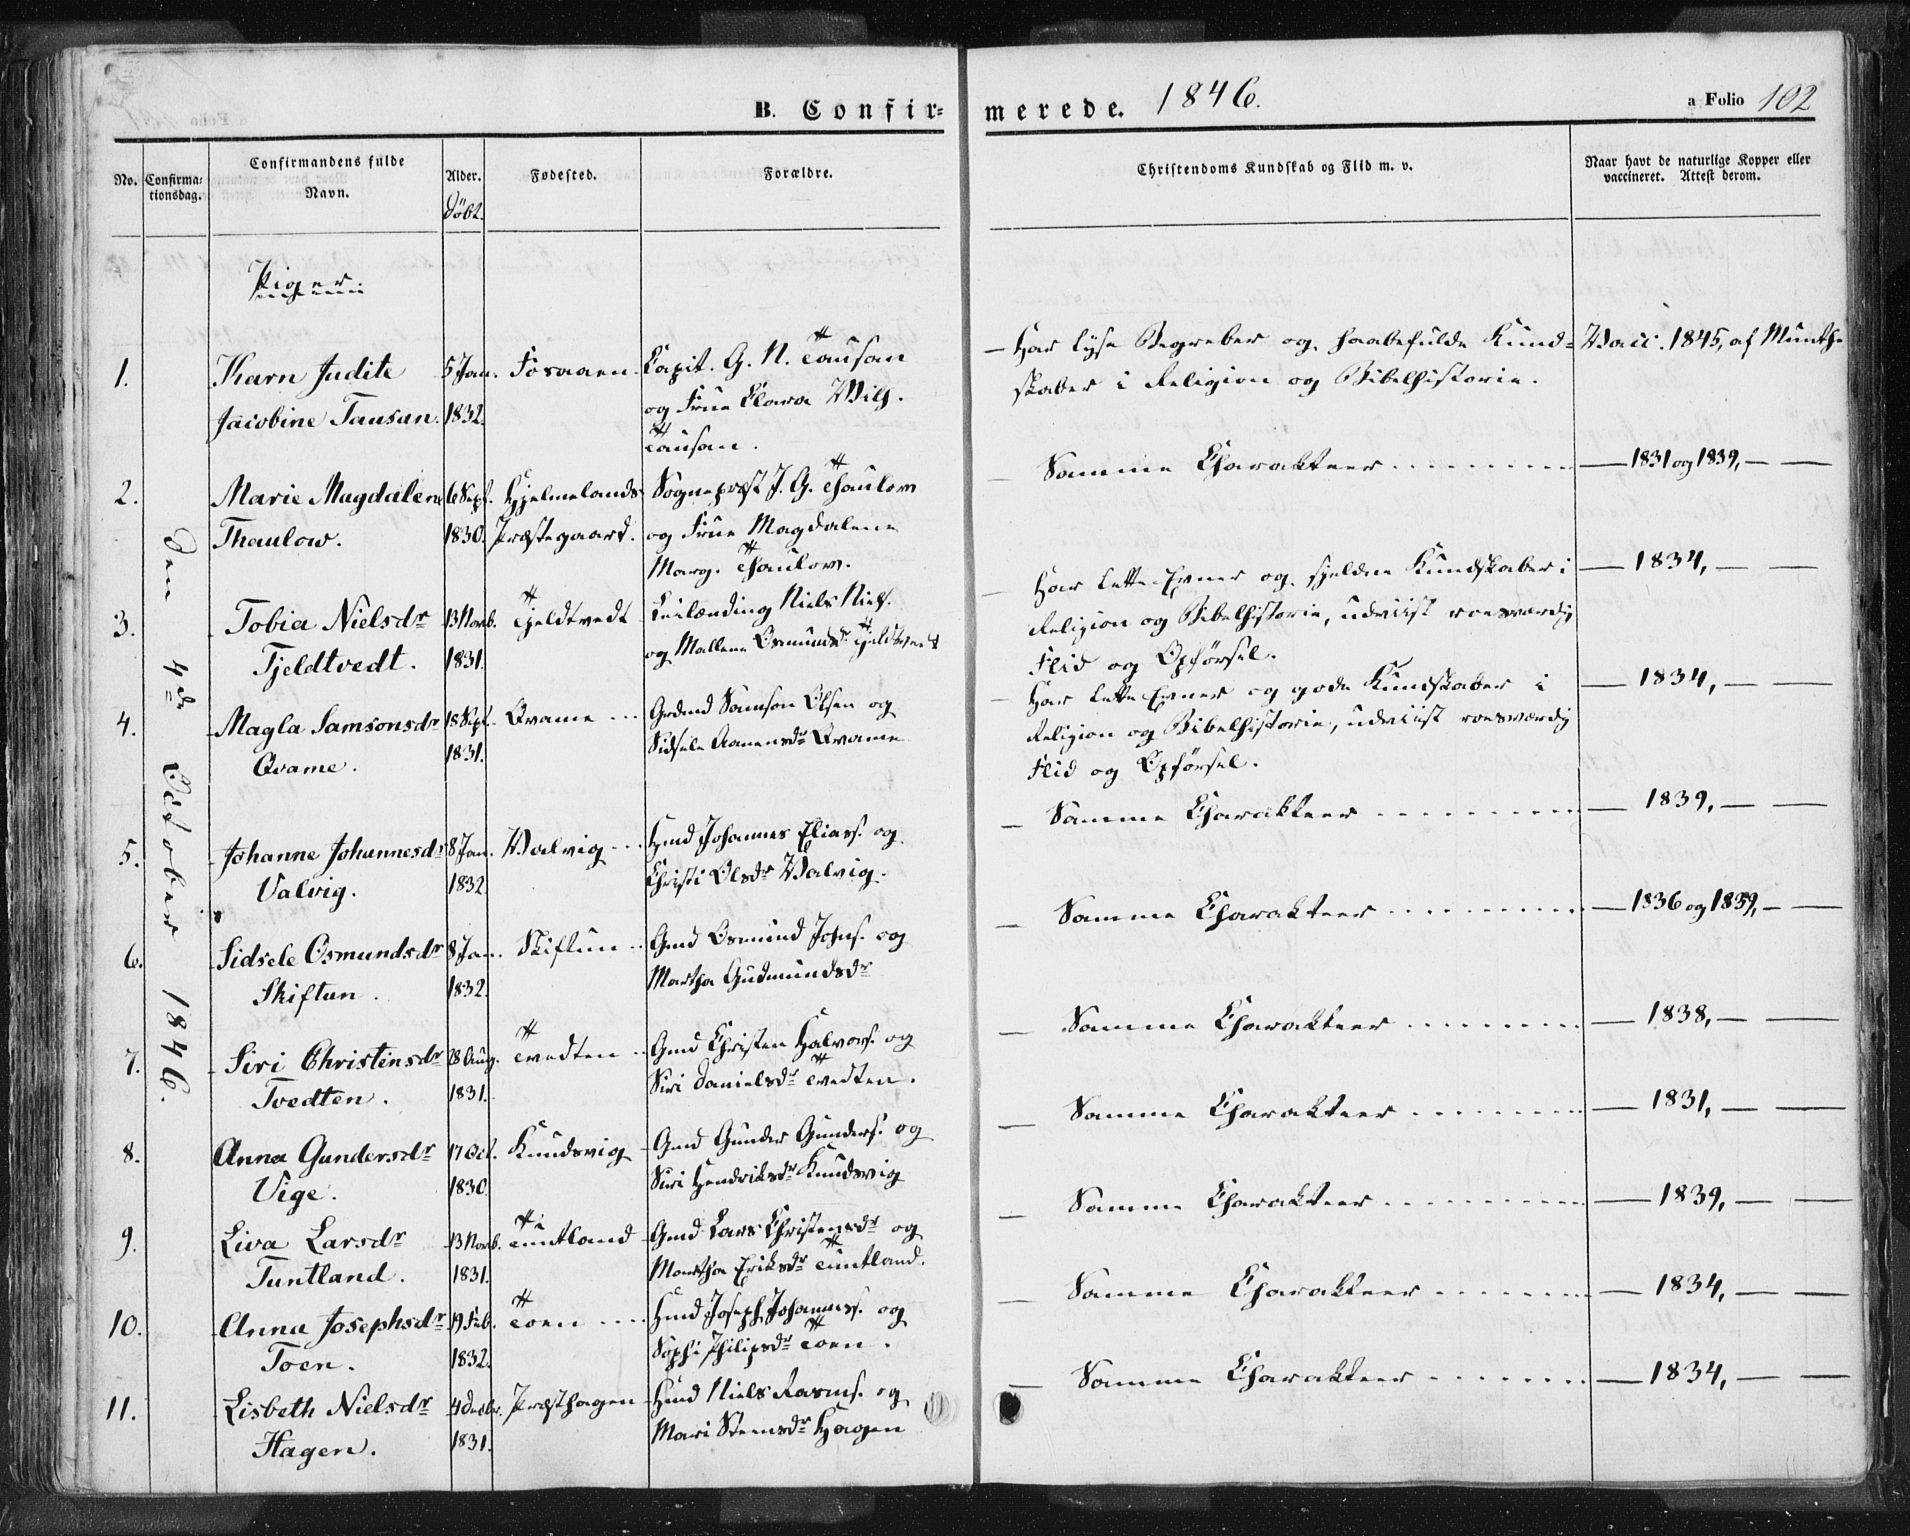 B. Confir-
merede. 1846.
a Folio 102
No.
Confirma-
tionsdag.
Confirmandens fulde
Navn.
Alder.
Døbt.
Fødested.
Forældre.
Christendoms Kundskab og Flid m. v.
Naar havt de naturlige Kopper eller
vaccineret. Attest derom.
Piger.
den 4de October 1846.
1.
Karn Judite
Jacobine Tausan.
5 Jan.
1832.
Fosaaen
Capit. G. N. Tausan
og Frue Clara Wilh.
Tausan.
Har lyse Begreber og haabefulde Kund-
skaber i Religion og Bibelhistorie.
Vacc. 1845, af Munthe
2.
Marie Magdalena
Thaulow.
6 Sept.
1830.
Hjelmelands
Præstegaard.
Sognepræst J. G. Thaulow
og Frue Magdalene
Marg. Thaulow.
Samme Charakteer
1831 og 1839,
3.
Tobia Nielsdr
Tjeldtvedt.
13 Novb.
1831.
Tjeldtvedt
Leilænding Niels Niels.
og Mallene Osmundsdr Tjeldtvedt
Har lette Evner og sjeldne Kundskaber i
Religion og Bibelhistorie, udviist roesværdig
Flid og Opførsel.
1834,
4.
Magla Samsonsdr
Qvame.
18 Sept.
1831.
Qvame
Grdmd Samson Olsen og
Sidsele Aanensdr Qvame
Har lette Evner og gode Kundskaber i
Religion og Bibelhistorie, udviist roesværdig
Flid og Opførsel.
1834,
5.
Johanne Johannesdr
Valvig.
8 Jan.
1832
Valvig
Hmd Johannes Elias. og
Christi Olsdr Valvig.
Samme Charakteer
1839,
6.
Sidsele Osmundsdr
Skiftun.
8 Jan.
1832.
Skiftun
Gmd Osmund Johns. og
Martha Gudmundsdr
Samme Charakteer
1836 og 1839,
7.
Siri Christensdr
Tvedten.
28 Aug.
1831.
Tvedten
Gmd Christen Halvors. og
Siri Danielsdr Tvedten.
Samme Charakteer
1838,
8.
Anna Gundersdr
Vige.
17 Oct.
1830.
Knudsvig
Gmd Gunder Gunders. og
Siri Hendriksdr Knudsvig
Samme Charakteer
1831,
9.
Liva Larsdr
Tuntland.
13 Novb.
1831.
Tuntland
Gmd Lars Christensdr og
Martha Eriksdr Tuntland.
Samme Charakteer
1839,
10.
Anna Josephsdr
Toen.
19 Feb.
1832.
Toen
Hmd Joseph Johannes. og
Sophi Philipsdr Toen.
Samme Charakteer
1834,
11.
Lisbeth Nielsdr
Hagen.
4 Decbr.
1831.
Præsthagen
Hmd Niels Rasms. og
Mari Steensdr Hagen
Samme Charakteer
1834,